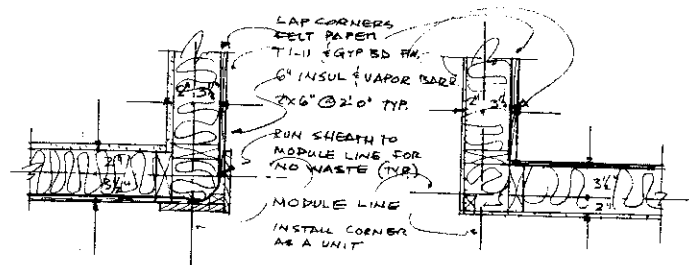 LAP CORNERS
FELT PAPER
T 1-11 & GYP BD FIN.
6" INSUL & VAPOR BARR.
2X6" @ 2'0" TYP.
RUN SHEATH TO
MODULE LINE FOR
NO WASTE (TYP.)
MODULE LINE
INSTALL CORNER
AS A UNIT
2" 3½"
2"
3½"
2" 3½"
3½"
2"